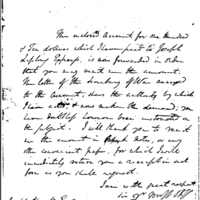 The enclosed Account for one Hundred
& Ten dollars which I have paid to Joseph
is now forwarded in order
that you may remit me the amount.
The letter of the Secretary of War annexed
to the Account, shews the authority by which
I have acted & now make the demand, you
have doubtless however been instructed on
the subject. I will thank you to remit
me the amount in Bank Notes, or any
other convenient paper, for which I will
immediately return you a receipt in such
form as you shall request.
I am with great respect
Sir yr